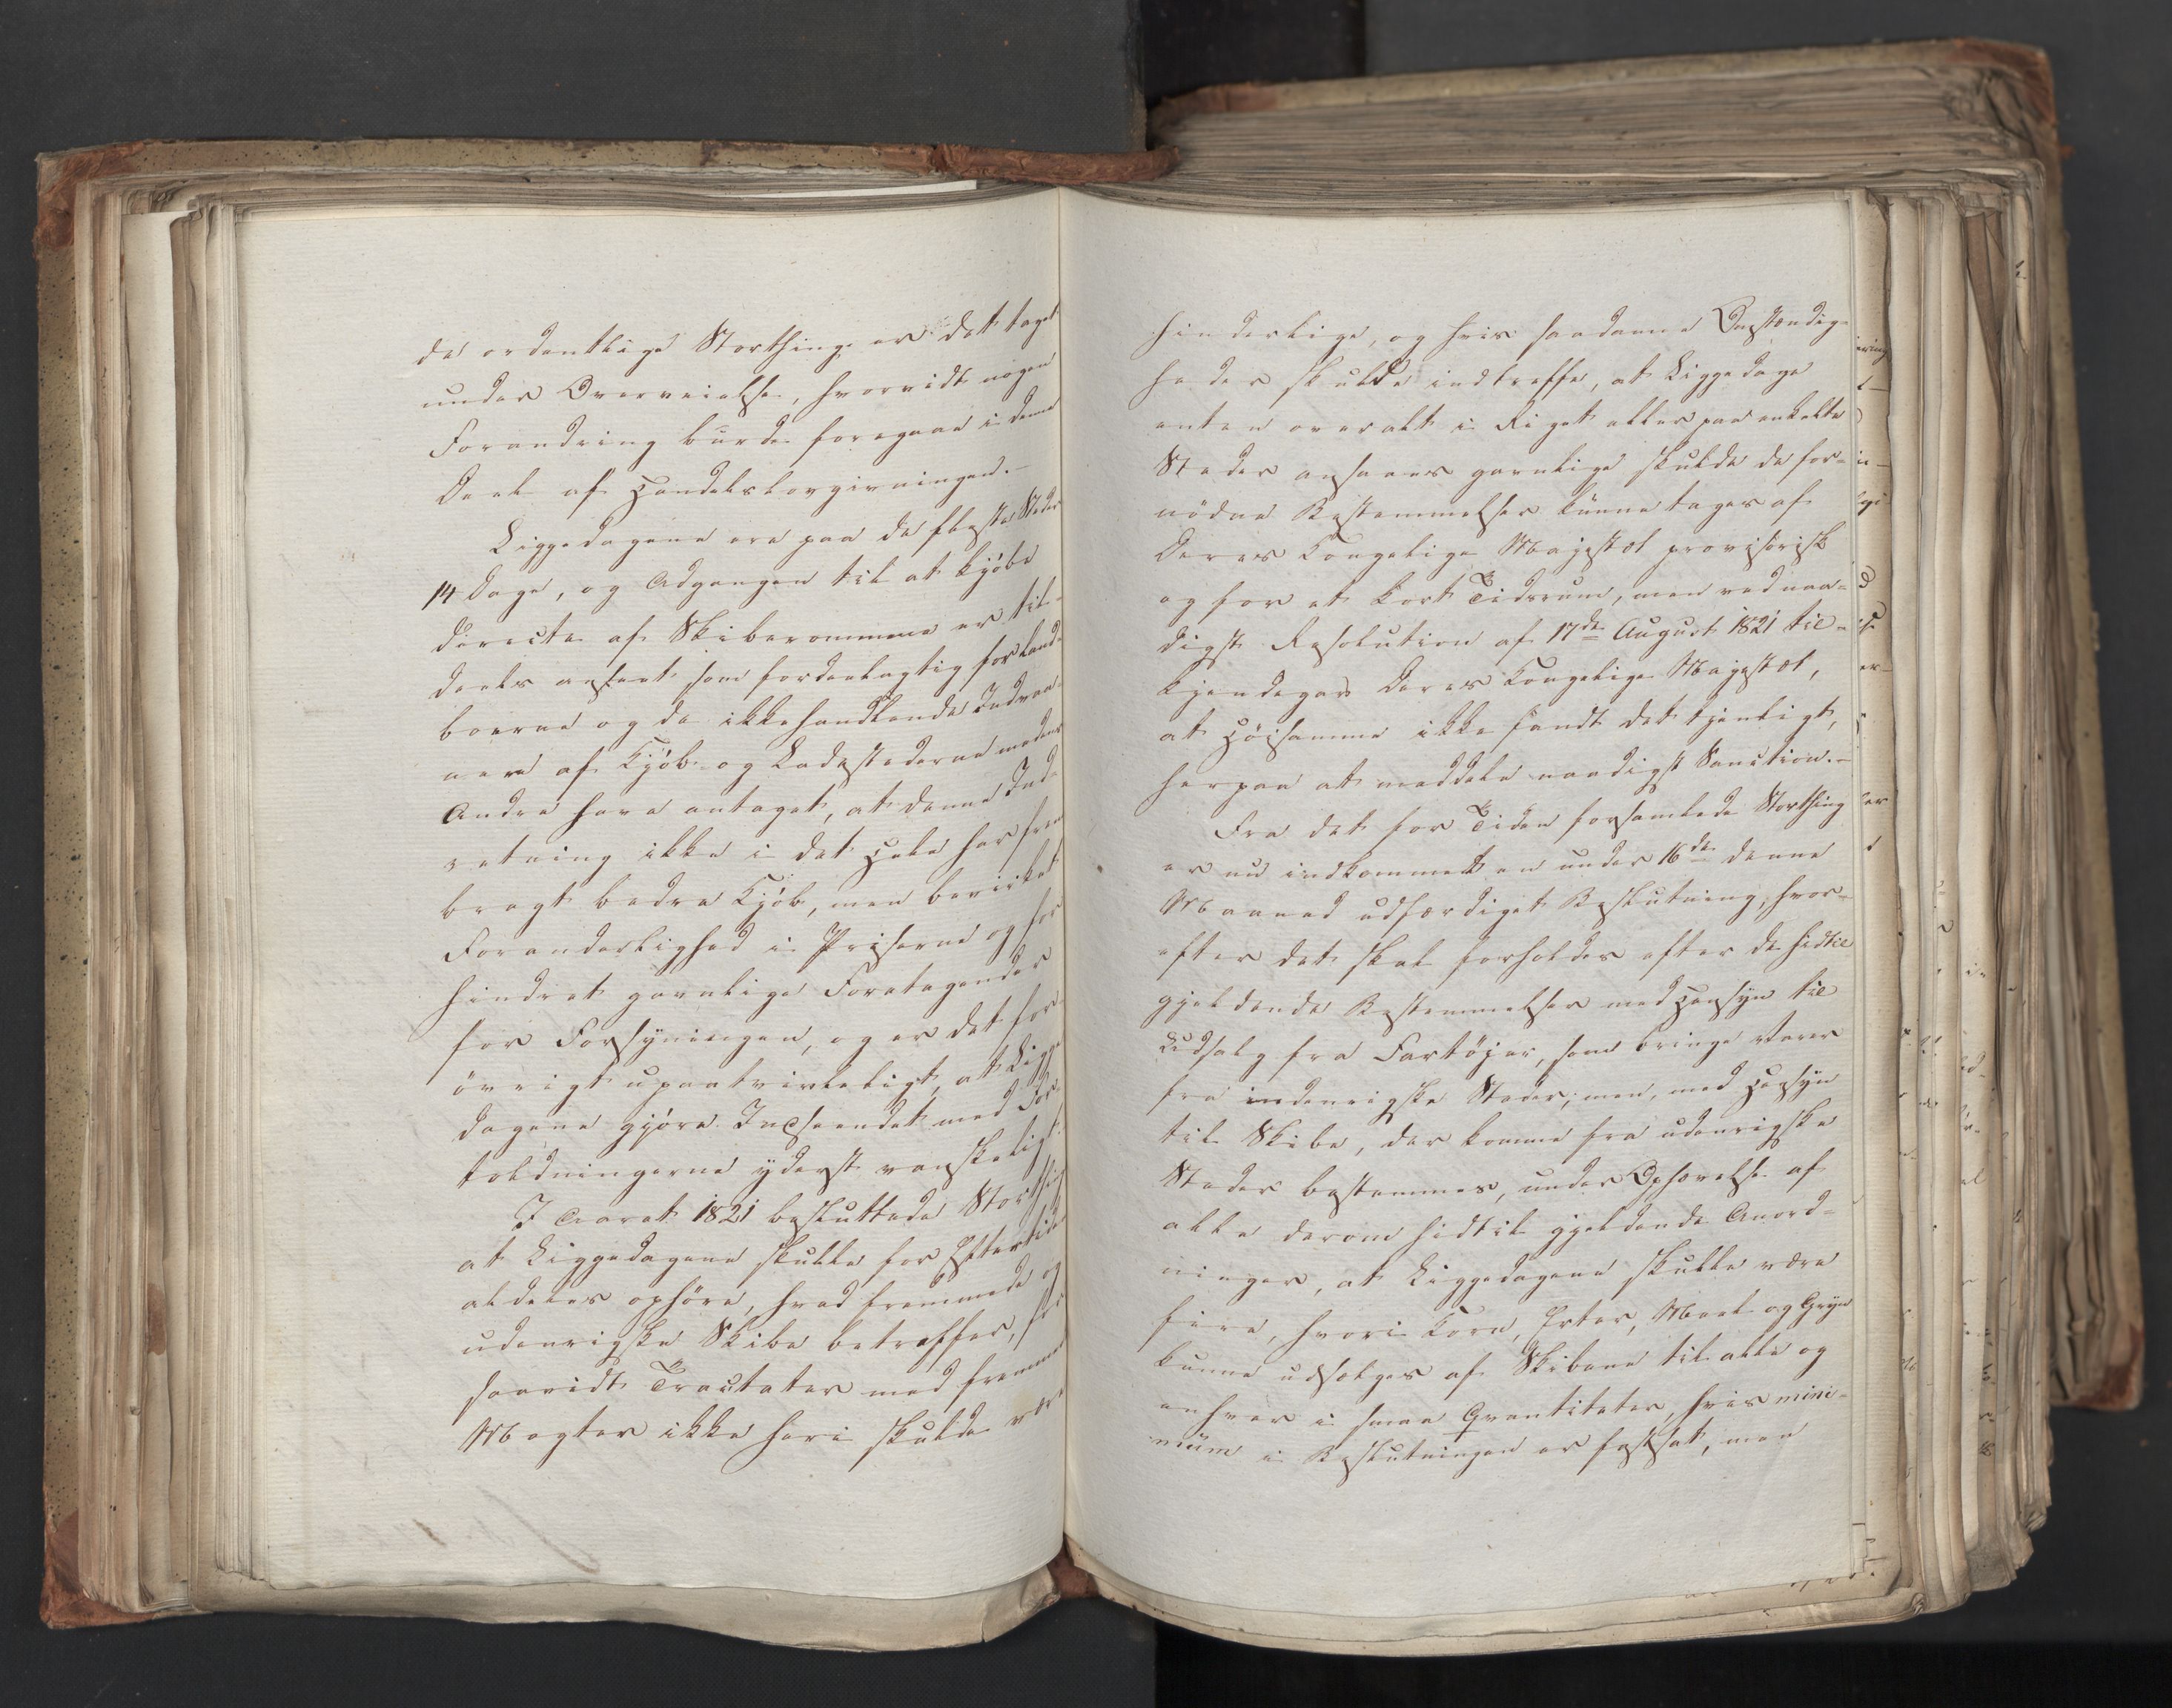 de ordentlige Storthing er det taget
under Overveielse, hvorvidt nogen
Forandring burde foregaae i denne
Deel af Handelslovgivningen.-
Liggedagene ere paa de fleste Steder
14 Dage, og Adgangen til at kjøbe
directe af Skiberommene er til-
deels anseet som fordeelagtig for Land-
boerne og de ikkehandlende Indvaa-
nere af Kjøb- og Ladestederne medens
Andre have antaget, at denne Ind-
retning ikke i det Hele har frem
bragt bedre Kjøb, men bevirket
Foranderlighed i Priserne og for
hindret gavnlige Foretagender
for Forsyningen, og er det for-
øvrigt upaatvivleligt, at Ligge
dagene gjøre Indseendet med For-
toldningerne yderst vanskeligt.
I Aaret 1821 besluttede Storthing
at Liggedagene skulle for Eftertiden
aldeles ophøre, hvad fremmede og
udenrigske Skibe betræffer, for
saavidt Tractater med fremmede
Magter ikke heri skulde være
hinderlige, og hvis saadanne Omstændig-
heder skulde indtræffe, at Liggedage
enten overalt i Riget eller paa enkelte
Steder ansaaes gavnlige skulde de for-
nødne Bestemmelser kunne tages af
Deres Kongelige Majestæt provisorisk
og for et kort Tidsrum, men ved naa-
digst Resolution af 17de August 1821 til-
kjendegav Deres Kongelige Majestæt,
at Høisamme ikke fandt det tjenligt,
herpaa at meddele naadigst Sanction.-
Fra det for Tiden forsamlede Storthing
er nu indkommet en under 16de denne
Maaned udfærdiget Beslutning, hvor-
efter det skal forholdes efter de hidtil
gjeldende Bestemmelser med Hensyn til
Udsalg fra Fartøjer, som bringe Varer
fra indenrigske Steder; men, med Hensyn
til Skibe, der komme fra udenrigske
Steder bestemmes, under Ophævelse af
alle derom hidtil gjeldende Anord-
ninger, at Liggedagene skulle være
fire, hvori Korn, Erter, Meel og Gryn
kunne udsælges af Skibene til alle og
enhver i smaa Qvantiteter, hvis mini-
mum i Beslutningen er fastsat, men